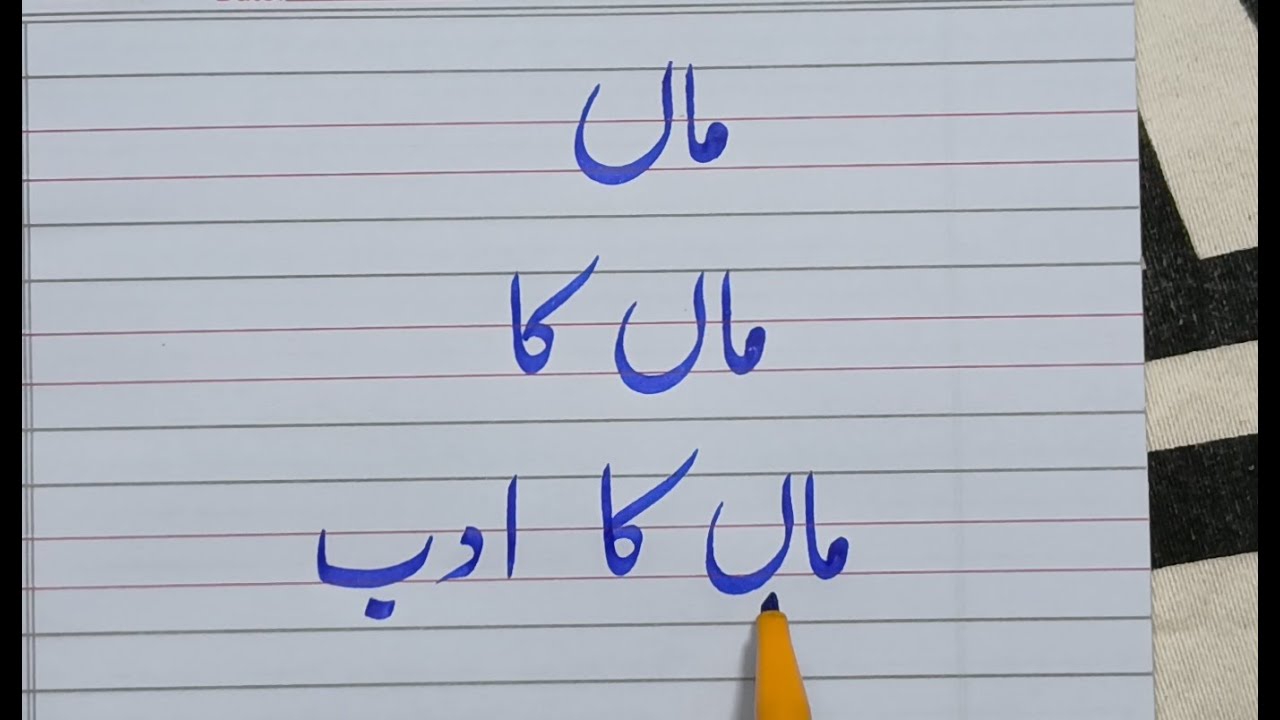 ماں
ماں کا
ماں کا ادب